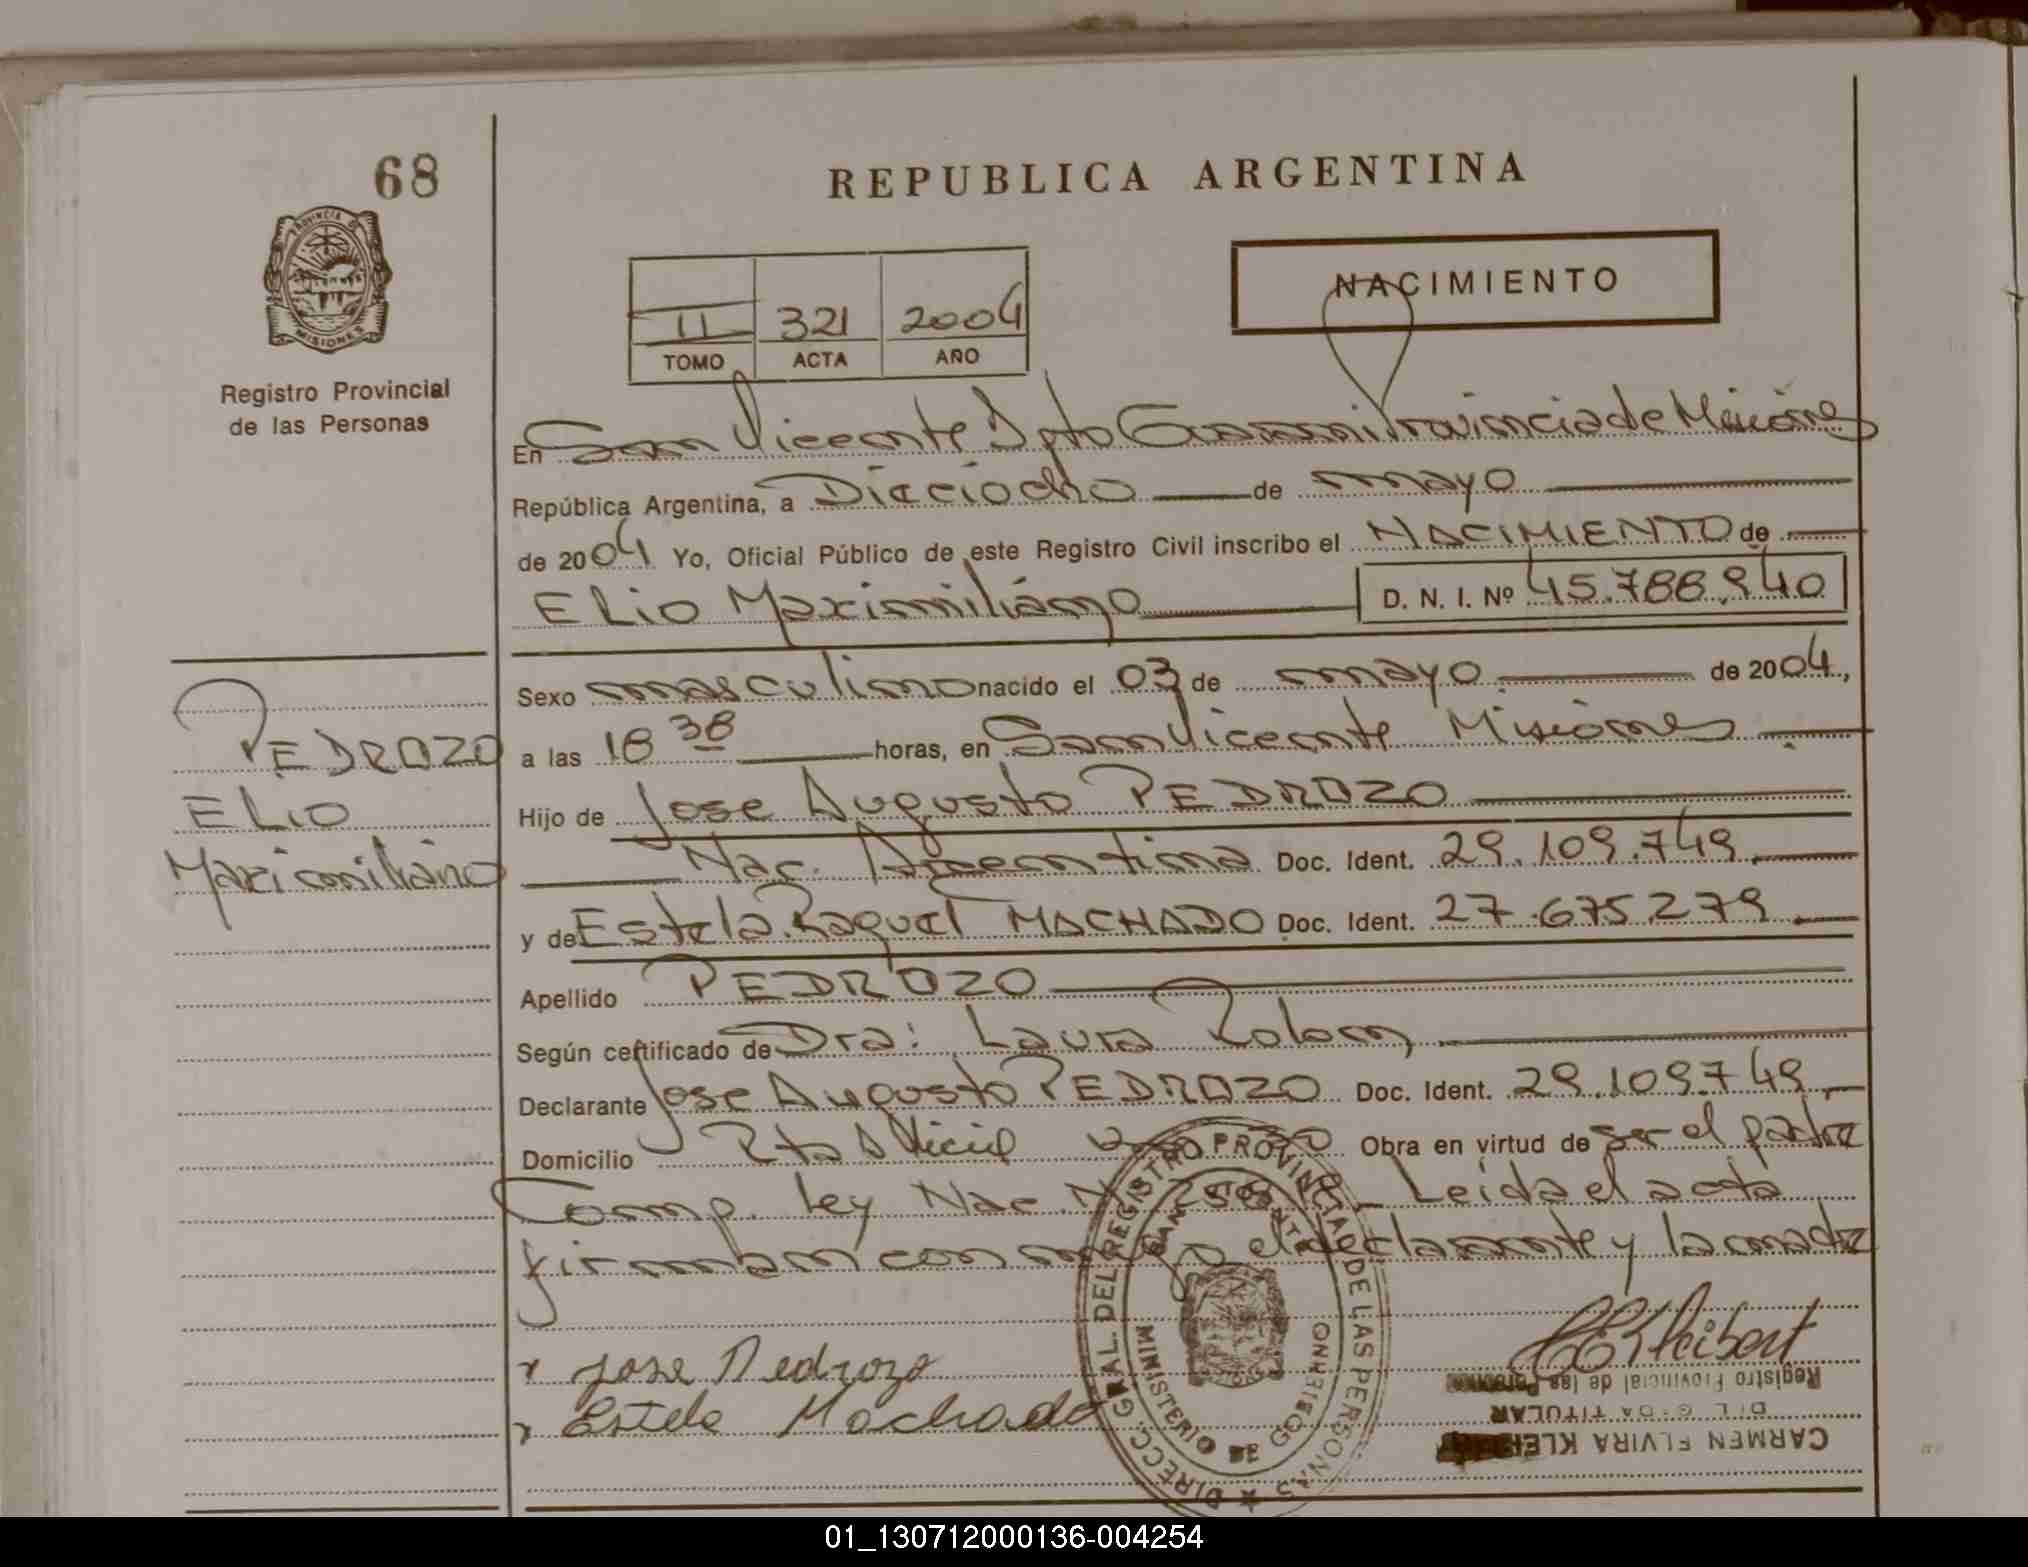 68
REPUBLICA ARGENTINA
PROVINCIA DE
MISIONES
NACIMIENTO
II 321 2004
TOMO ACTA AÑO
Registro Provincial
de las Personas
En San Vicente Dpto Guarani Provincia de Misiónes
República Argentina, a Dieciocho de mayo
de 2004 Yo, Oficial Público de este Registro Civil inscribo el NACIMIENTO de
ELIO Maximiliáno D. N. I. Nº 45.788.940
Sexo masculino nacido el 03 de mayo de 2004,
PEDROZO
a las 18 38 horas, en San Vicente Misiónes
ELIO
Hijo de Jose Augusto PEDROZO
Maximiliáno
Nac. Argentina Doc. Ident. 29.109.749
y de Estela Raquel MACHADO Doc. Ident. 27.675.279
Apellido PEDROZO
Según certificado de Dra: Laura Rolon
Declarante Jose Augusto PEDROZO Doc. Ident. 29.109.749
Domicilio Obra en virtud de ser el padre
Comp. Ley Nac. Nº Leida el acta
firman con migo el declarante y la madre
Jose Pedrozo
Estela Machado
DIRECC. GRAL. DEL REGISTRO PROVINCIAL DE LAS PERSONAS
SAN VICENTE
MINISTERIO DE GOBIERNO
Registro Provincial de las Personas
TITULAR
CARMEN ELVIRA
01_130712000136-004254